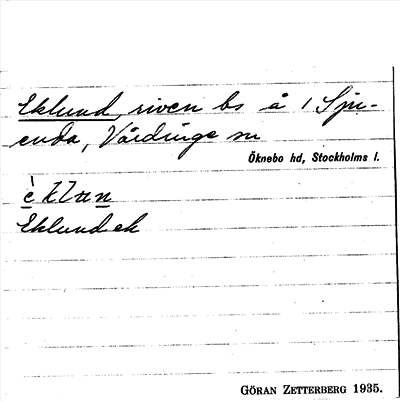 Eklund, riven bs å 1 Sju-
enda, Vårdinge sn
Öknebo hd, Stockholms l.
è klan
Eklund ek
GÖRAN ZETTERBERG 1935.